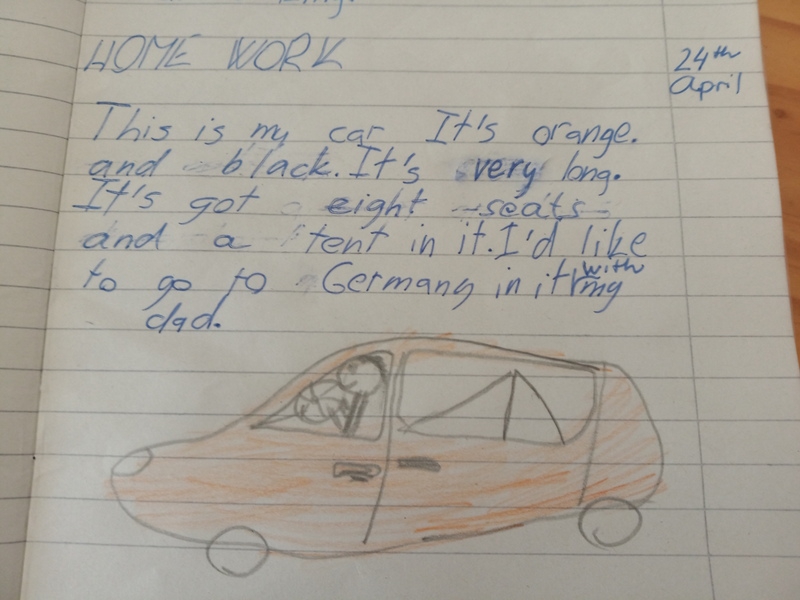 HOME WORK
24th
April
This is my car It's orange.
and black. It's very long.
It's got eight seats
and a tent in it. I'd like
to go to Germany in it with my
dad.